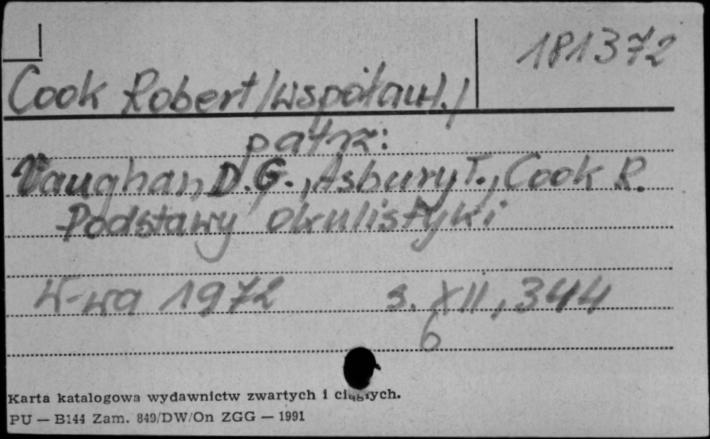 181372
Cook Robert /współaut./
patrz:
Vaughan D.G., Asbury T., Cook R.
Podstawy okulistyki
W-wa 1972 s. XII, 344
6
Karta katalogowa wydawnictw zwartych i ciągłych.
PU — B144 Zam. 849/DW/On ZGG — 1991